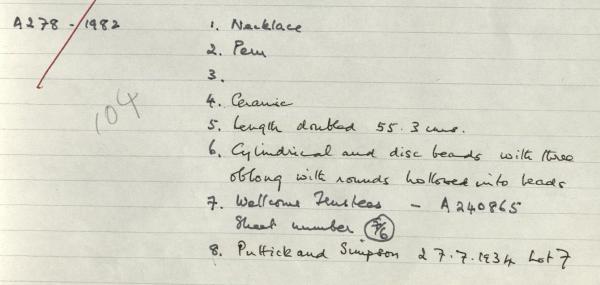 A278 - 1982
1. Necklace
2. Peru
3.
104
4. Ceramic
5. Length doubled 55.3 cms.
6. Cylindrical and disc beads with three
oblong with rounds hollowed into beads
7. Wellcome Trustees - A240865
Sheet number 5/6
8. Puttick and Simpson 27.7.1934 Lot 7